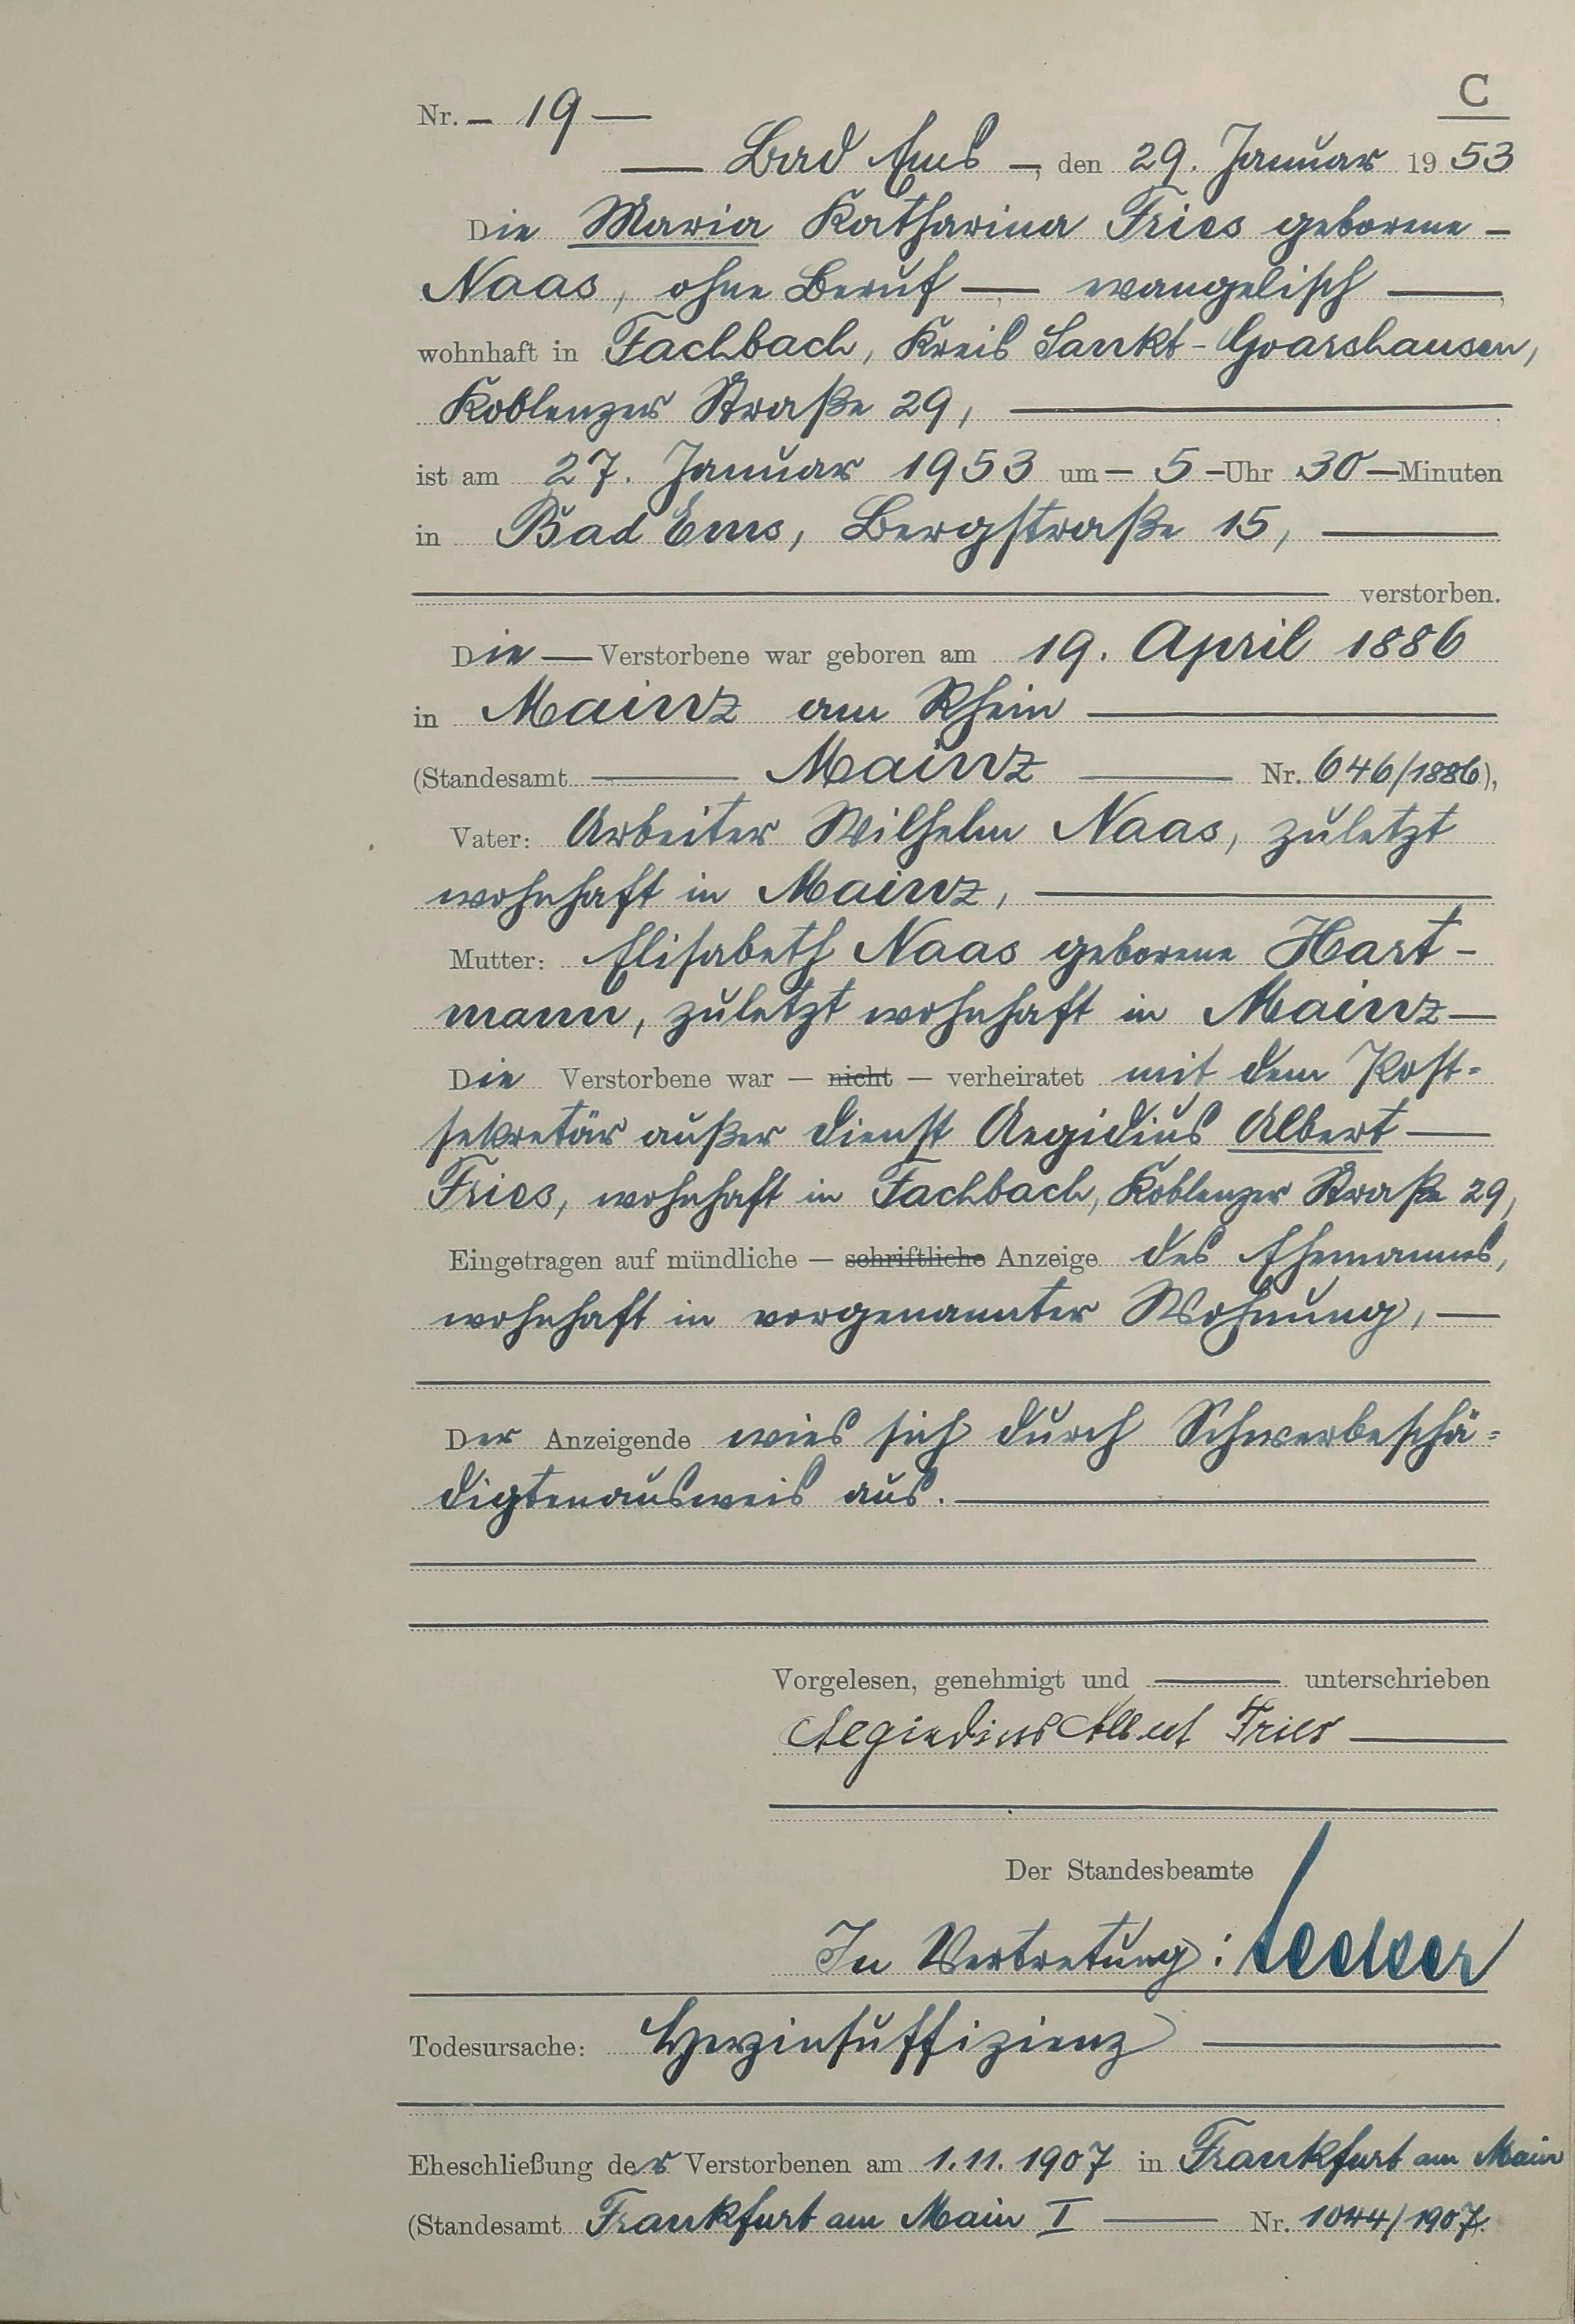 C
Nr. — 19 —
— Bad Ems —, den 29. Januar 1953
Die Maria Katharina Fries geborene —
Naas, ohne Beruf —, evangelisch —,
wohnhaft in Fachbach, Kreis Sankt-Goarshausen,
Koblenzer Straße 29, —
ist am 27. Januar 1953 um — 5 — Uhr 30 — Minuten
in Bad Ems, Bergstraße 15, —
— verstorben.
Die — Verstorbene war geboren am 19. April 1886
in Mainz am Rhein —
(Standesamt — Mainz — Nr. 646/1886),
Vater: Arbeiter Wilhelm Naas, zuletzt
wohnhaft in Mainz, —
Mutter: Elisabeth Naas geborene Hart-
mann, zuletzt wohnhaft in Mainz —
Die Verstorbene war — nicht — verheiratet mit dem Post-
sekretär außer Dienst Aegidius Albert —
Fries, wohnhaft in Fachbach, Koblenzer Straße 29,
Eingetragen auf mündliche — schriftliche Anzeige des Ehemannes,
wohnhaft in vorgenannter Wohnung, —
Der Anzeigende wies sich durch Schwerbeschä-
digtenausweis aus. —
Vorgelesen, genehmigt und — unterschrieben
Aegiedius Albert Fries —
Der Standesbeamte
In Vertretung:
Todesursache: Herzinsuffizienz —
Eheschließung der Verstorbenen am 1.11.1907 in Frankfurt am Main
(Standesamt Frankfurt am Main I — Nr. 1044/1907.